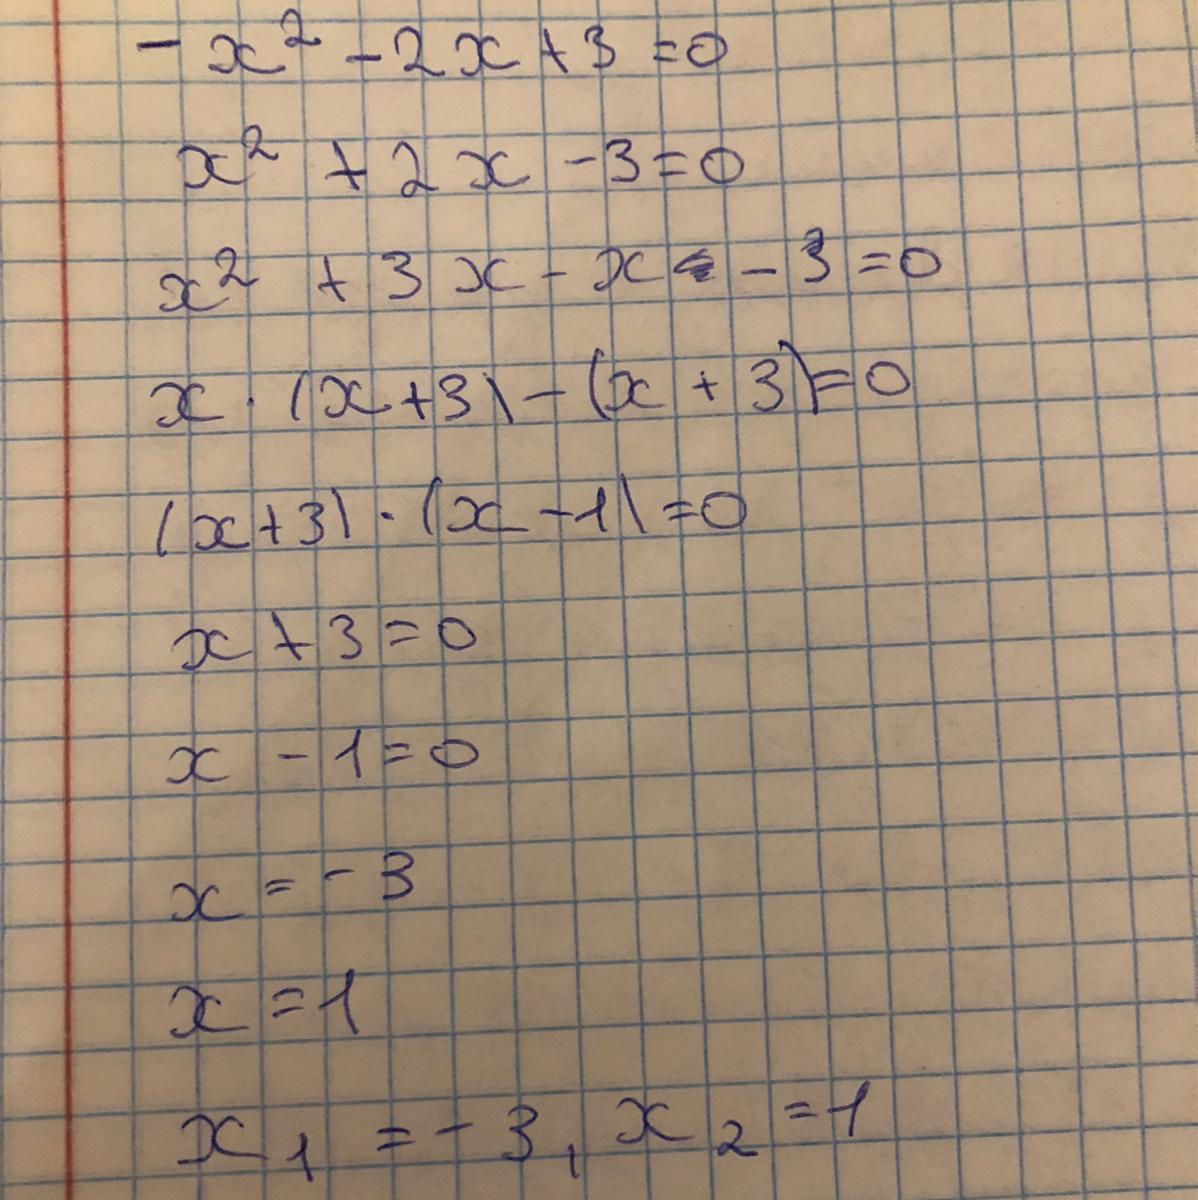 - x² - 2x + 3 = 0
x² + 2x - 3 = 0
x² + 3x - x - 3 = 0
x · (x + 3) - (x + 3) = 0
(x + 3) · (x - 1) = 0
x + 3 = 0
x - 1 = 0
x = - 3
x = 1
x₁ = - 3, x₂ = 1